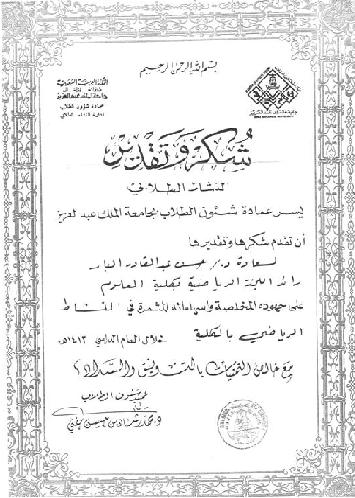 بسم الله الرحمن الرحيم
المملكة العربية السعودية
جامعة الملك عبد العزيز
عمادة شؤون الطلاب
شكر وتقدير
للنشاط الطلابي
يسر عمادة شئون الطلاب بجامعة الملك عبد العزيز
أن تقدم شكرها وتقديرها
لسعادة د. حسن عبد القادر البار
رائد اللجنة الرياضية بكلية العلوم
على جهوده المخلصة واسهاماته المثمرة في النشاط
الرياضي بالكلية خلال العام الدراسي ١٤١٣هـ
مع خالص التمنيات بالتوفيق والسداد،
عميد شئون الطلاب